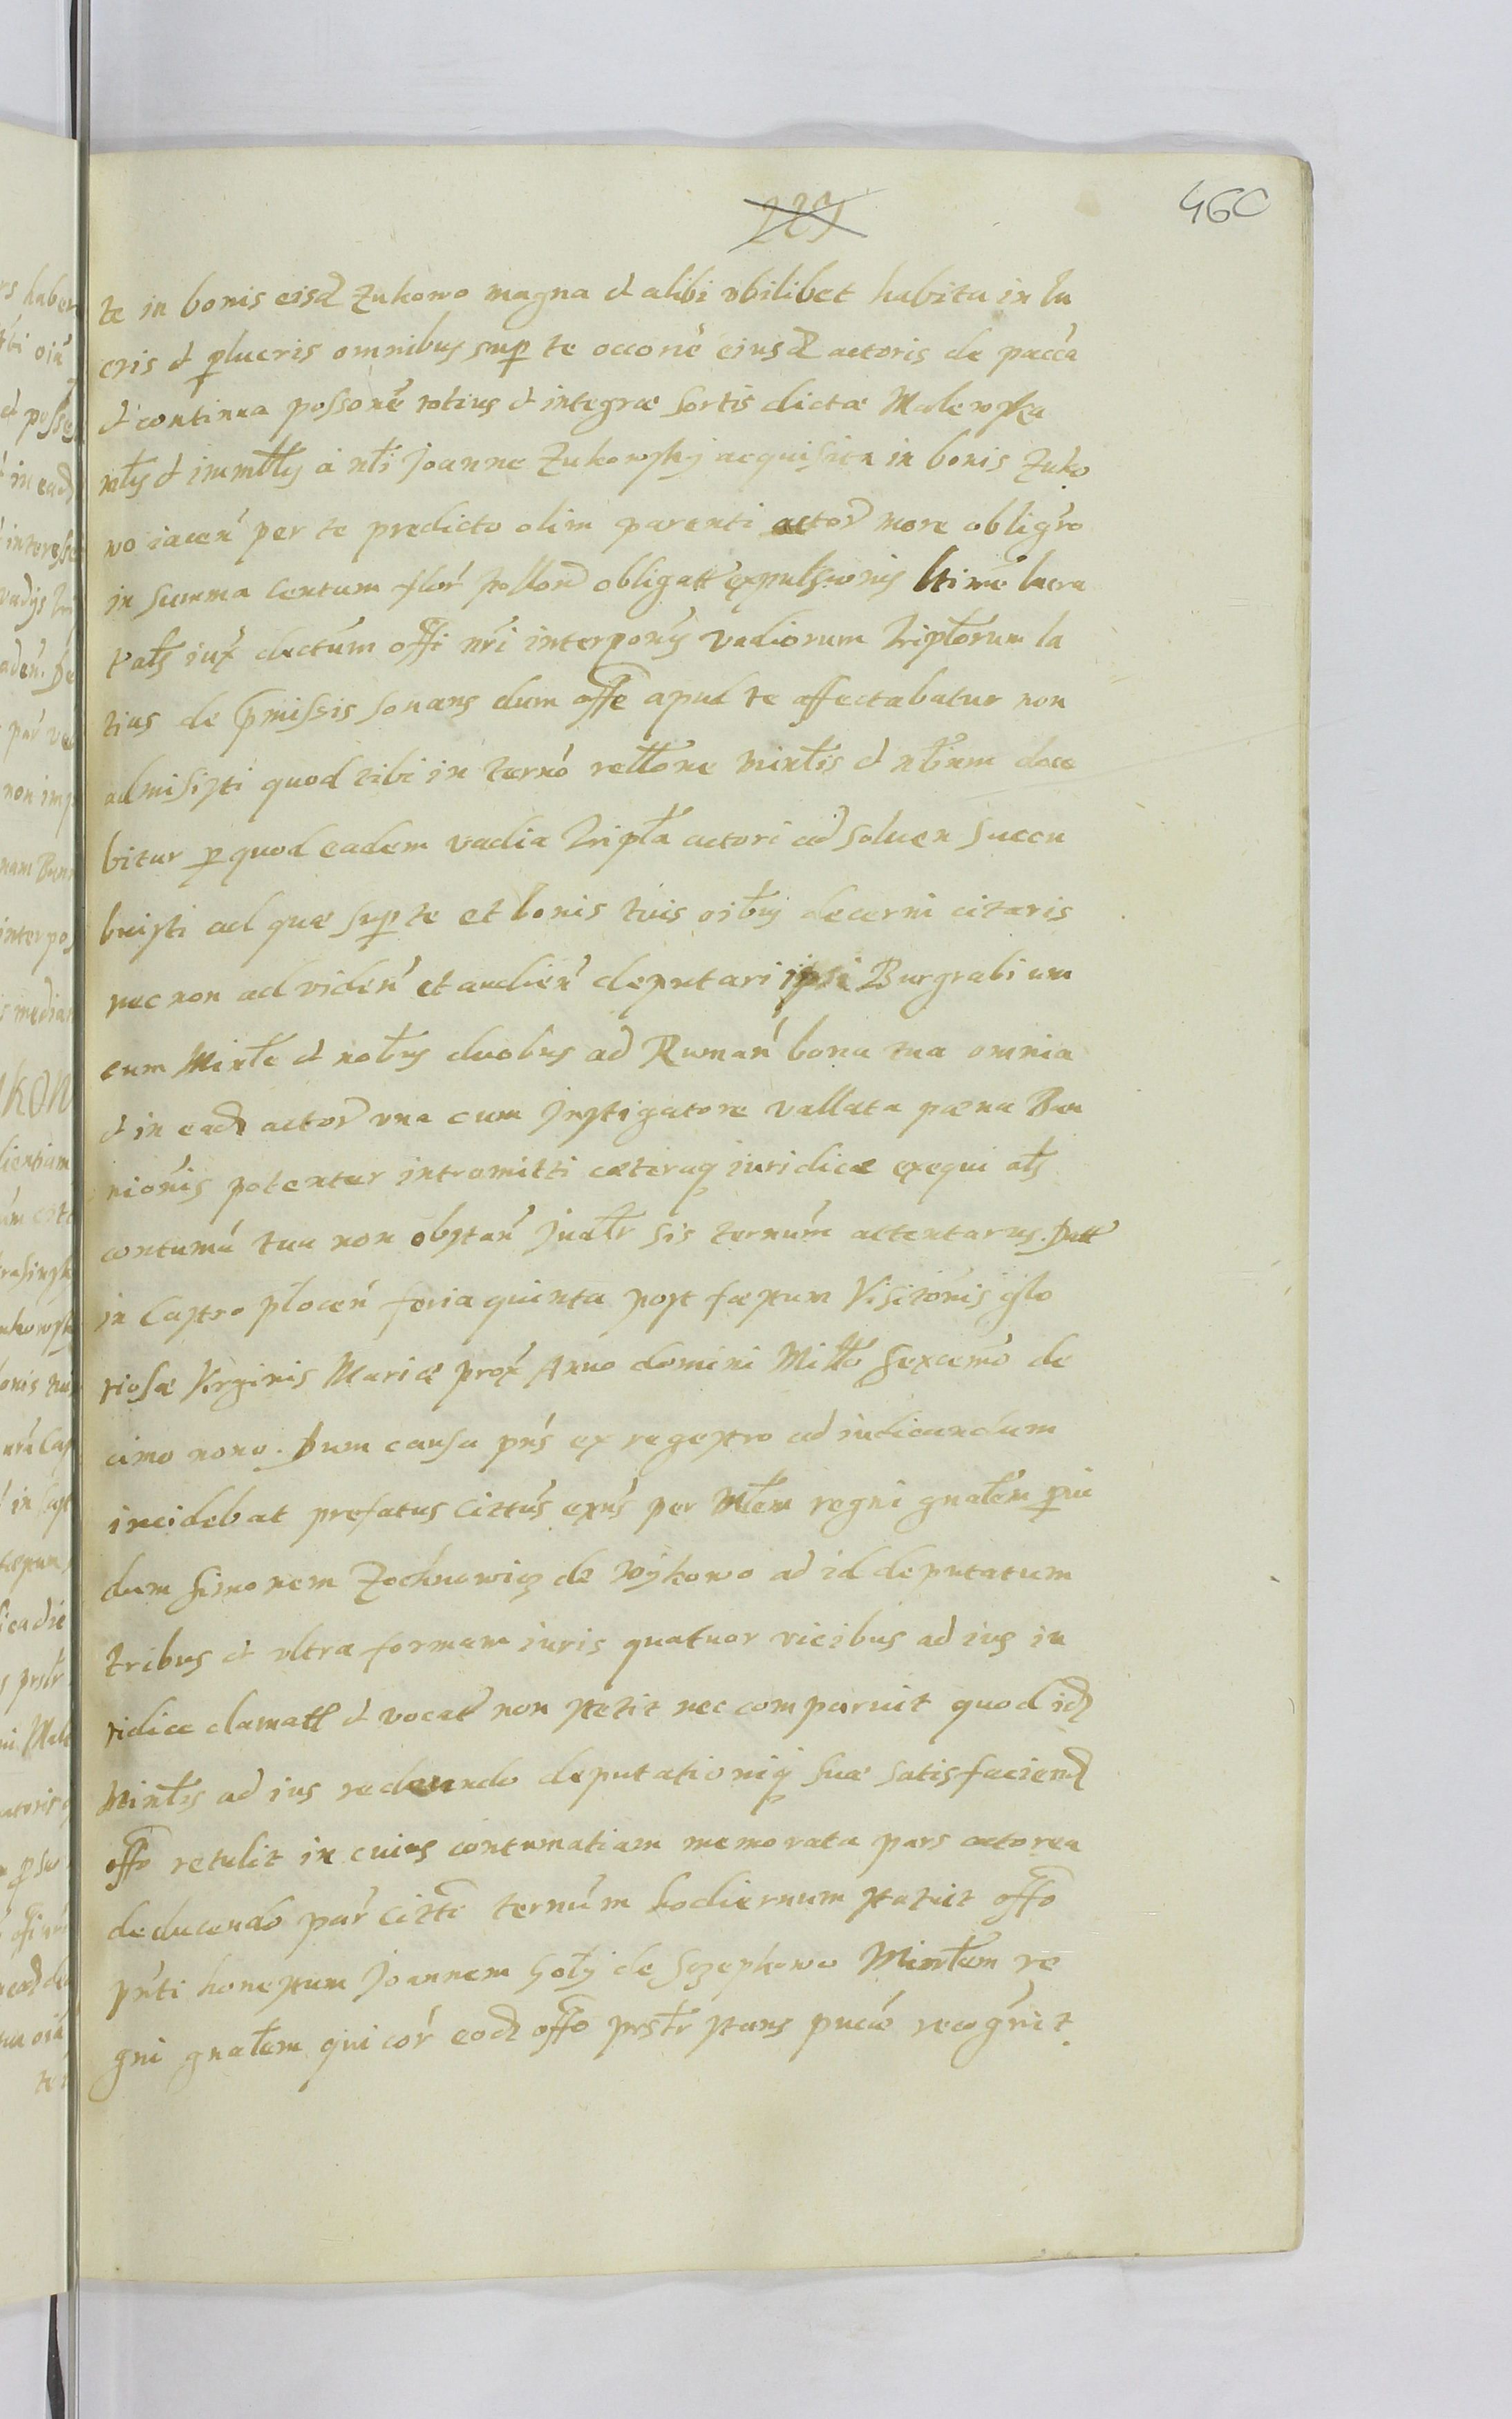 460
227
te in bonis eisd Zukowo magna et alibi vbilibet habita in lu
cris et perlucris omnibus sup te occone eiusd actoris de pacca
et continua possone totius et integræ sortis dictæ Malewska
et immttis à nti Joanne Zukowsky acquisita in bonis Zuko
wo iacen per te predicto olim parenti actor more obligro
in summa centum flor pollon obligatt expulsionis ltime lucra
tals iux dectum offi nri interponis vadiorum triplorum la
tius de pmissis sonans dum offe apud te affectabatur non
admisisti quod tibi in termo rellone minlis et nblium doce
bitur p quod eadem vadia tripla actori ad soluen succu
buisti ad quæ sup te et bonis tuis oibus decerni citaris
nec non ad viden et audien deputari ipsi Burgrabium
cum Minle et nobus duobus ad Ruman bona tua omnia
et in ead actor vna cum Instigatore vallata pæna Ban
nionis potenter intromitti cæteraq iuridicæ exequi als
contumá tua non obstan Jualr sis termum attentarus. Datt
in Castro plocen feria quinta post fæstum Visitonis glo
riosæ Virginis Mariæ prox Anno domini Millo Sexcemo de
cimo nono. Dum causa pns ex regestro ad iudicandum
incidebat prefatus Cittus exns per Mlem regni gnalem pui
dum Simonem Zochnowicz de Wykowo ad id deputatum
tribus et vltra formam iuris quatuor vicibus ad ius iu
ridice clamatt et vocat non stetit nec comparuit quod id
Minlis ad ius redeundo deputationiq suæ satisfaciend
offo retulit in cuius contumatiam memorata pars actorea
deducendo par citte termum hodiernum statuit offo
pnti honestum Joannem Goły de Szczepkowo Minlem re
gni gnalem qui cor eod offo prslr stans pucæ recognit.